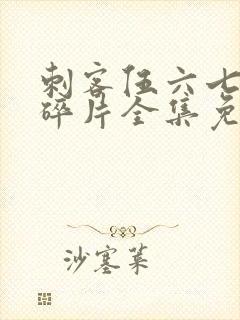 刺客伍六七
碎片全集免
沙塞菓